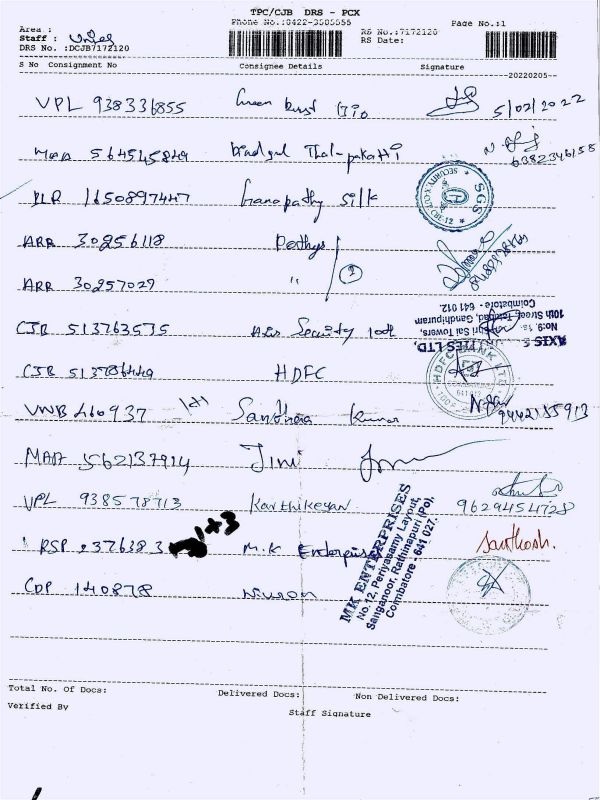 TPC/CJB DRS - PCX
Phone No.:0422-3505555
Page No.:1
Area :
RS No.:7172120
Staff :
RS Date:
DRS No. :DCJB7172120
S No Consignment No Consignee Details Signature
20220205
VPL 938336855 Green Jio
5/02/2022
MAA 564545849 Thal-pakatti
6382346158
KLR 1650897447 Ganapathy Silk
SGS
ARR 30256118 Porthys
ARR 30257029 "
2
CJB 513763535 Axis Security 10th
AXIS SECURITIES LTD,
No.9, 1st Sri Sai Towers,
10th Street, Tatabad, Gandhipuram
Coimbatore - 641 012.
CJB 513786449 HDFC
HDFC BANK LTD
VNB 460937 Santhira Kumar
9442155913
MAA 562137914 Jimi
VPL 938578713 Karthikeyan
9629454728
RSP 2376383 +3 M.K Enterprises
MK ENTERPRISES
No.12, Periyasamy Layout,
Sanganoor, Rathinapuri (Po),
Coimbatore - 641 027.
Santhosh.
CDP 140878
Total No. Of Docs: Delivered Docs: Non Delivered Docs:
Verified By
Staff Signature